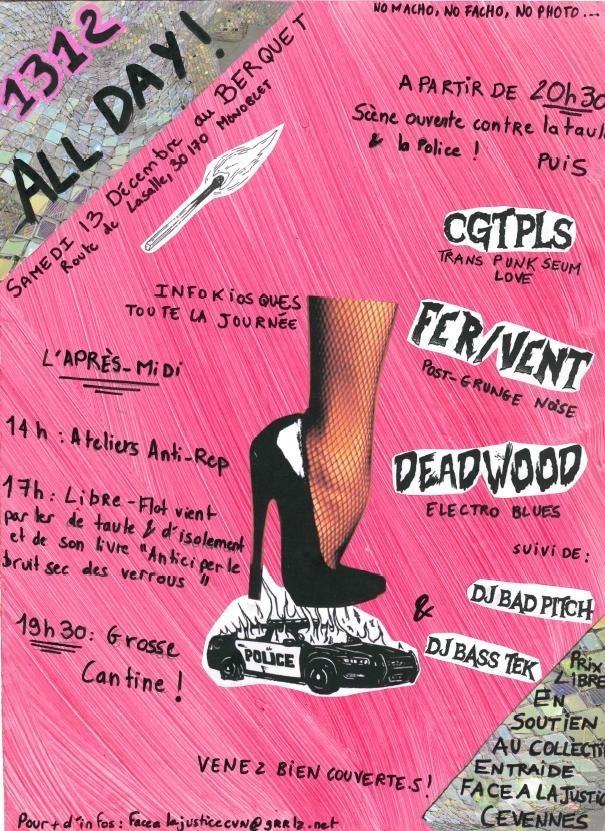 NO MACHO, NO FACHO, NO PHOTO...
1312
ALL DAY!
SAMEDI 13 Décembre au BERQUET
Route de Lasalle, 30170 MONOBLET
A PARTIR DE 20h30
Scène ouverte contre la taule
& la Police !
PUIS
CGTPLS
TRANS PUNK SEUM
LOVE
INFOKIOSQUES
TOUTE LA JOURNÉE
FER/VENT
POST-GRUNGE NOISE
L'APRÈS-MIDI
14h : Ateliers Anti-Rep
DEADWOOD
ELECTRO BLUES
17h : Libre-Flot vient
parler de taule & d'isolement
et de son livre "Anticiper le
bruit sec des verrous"
SUIVI DE :
DJ BAD PITCH
&
DJ BASS TEK
POLICE
19h30 : Grosse
Cantine !
Prix
LIBRE
EN
SOUTIEN
AU COLLECTI
ENTRAIDE
FACE A LA JUSTIC
CEVENNES
VENEZ BIEN COUVERTE.S !
Pour + d'infos : facealajusticecvn@grrlz.net